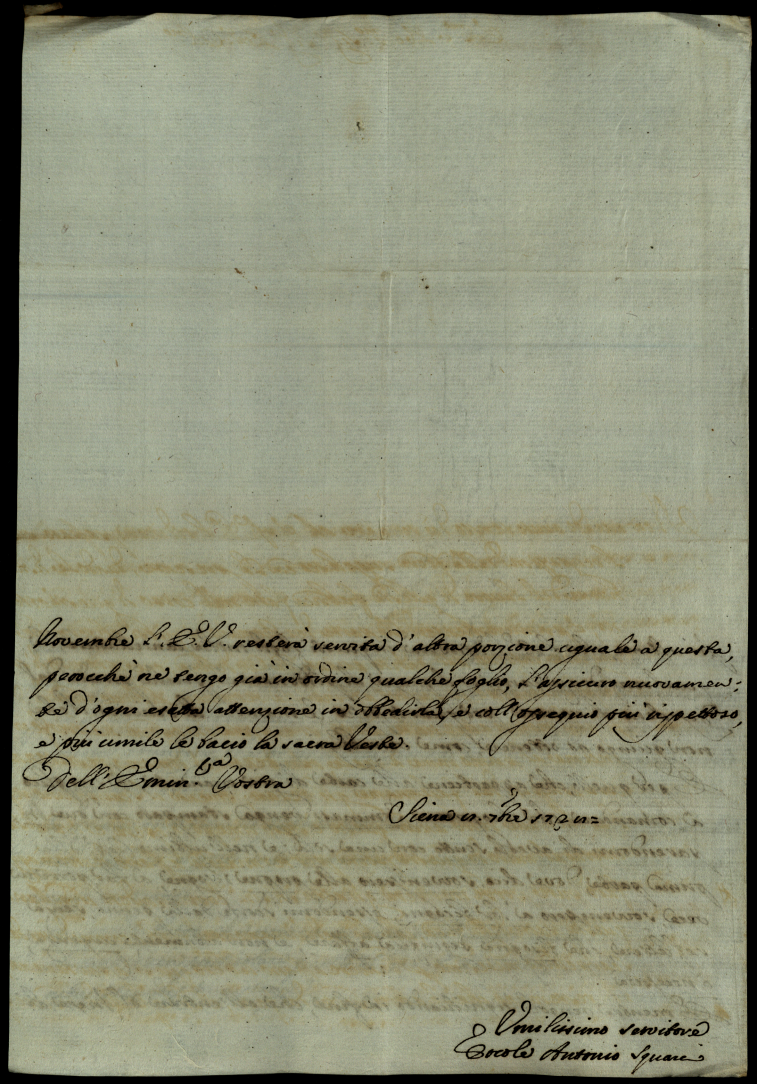 Novembre l'E. V. resterà servita d'altra porzione uguale a questa,
perocchè ne tengo già in ordine qualche foglio, l'assicuro nuovamen=
te d'ogni esatta attenzione in obbedirla, e coll'ossequio più rispettoso,
e più umile le bacio la sacra Veste.
Dell'Emin.za Vostra
Siena 7bre
Umilissimo servitore
Ercole Antonio Squarci